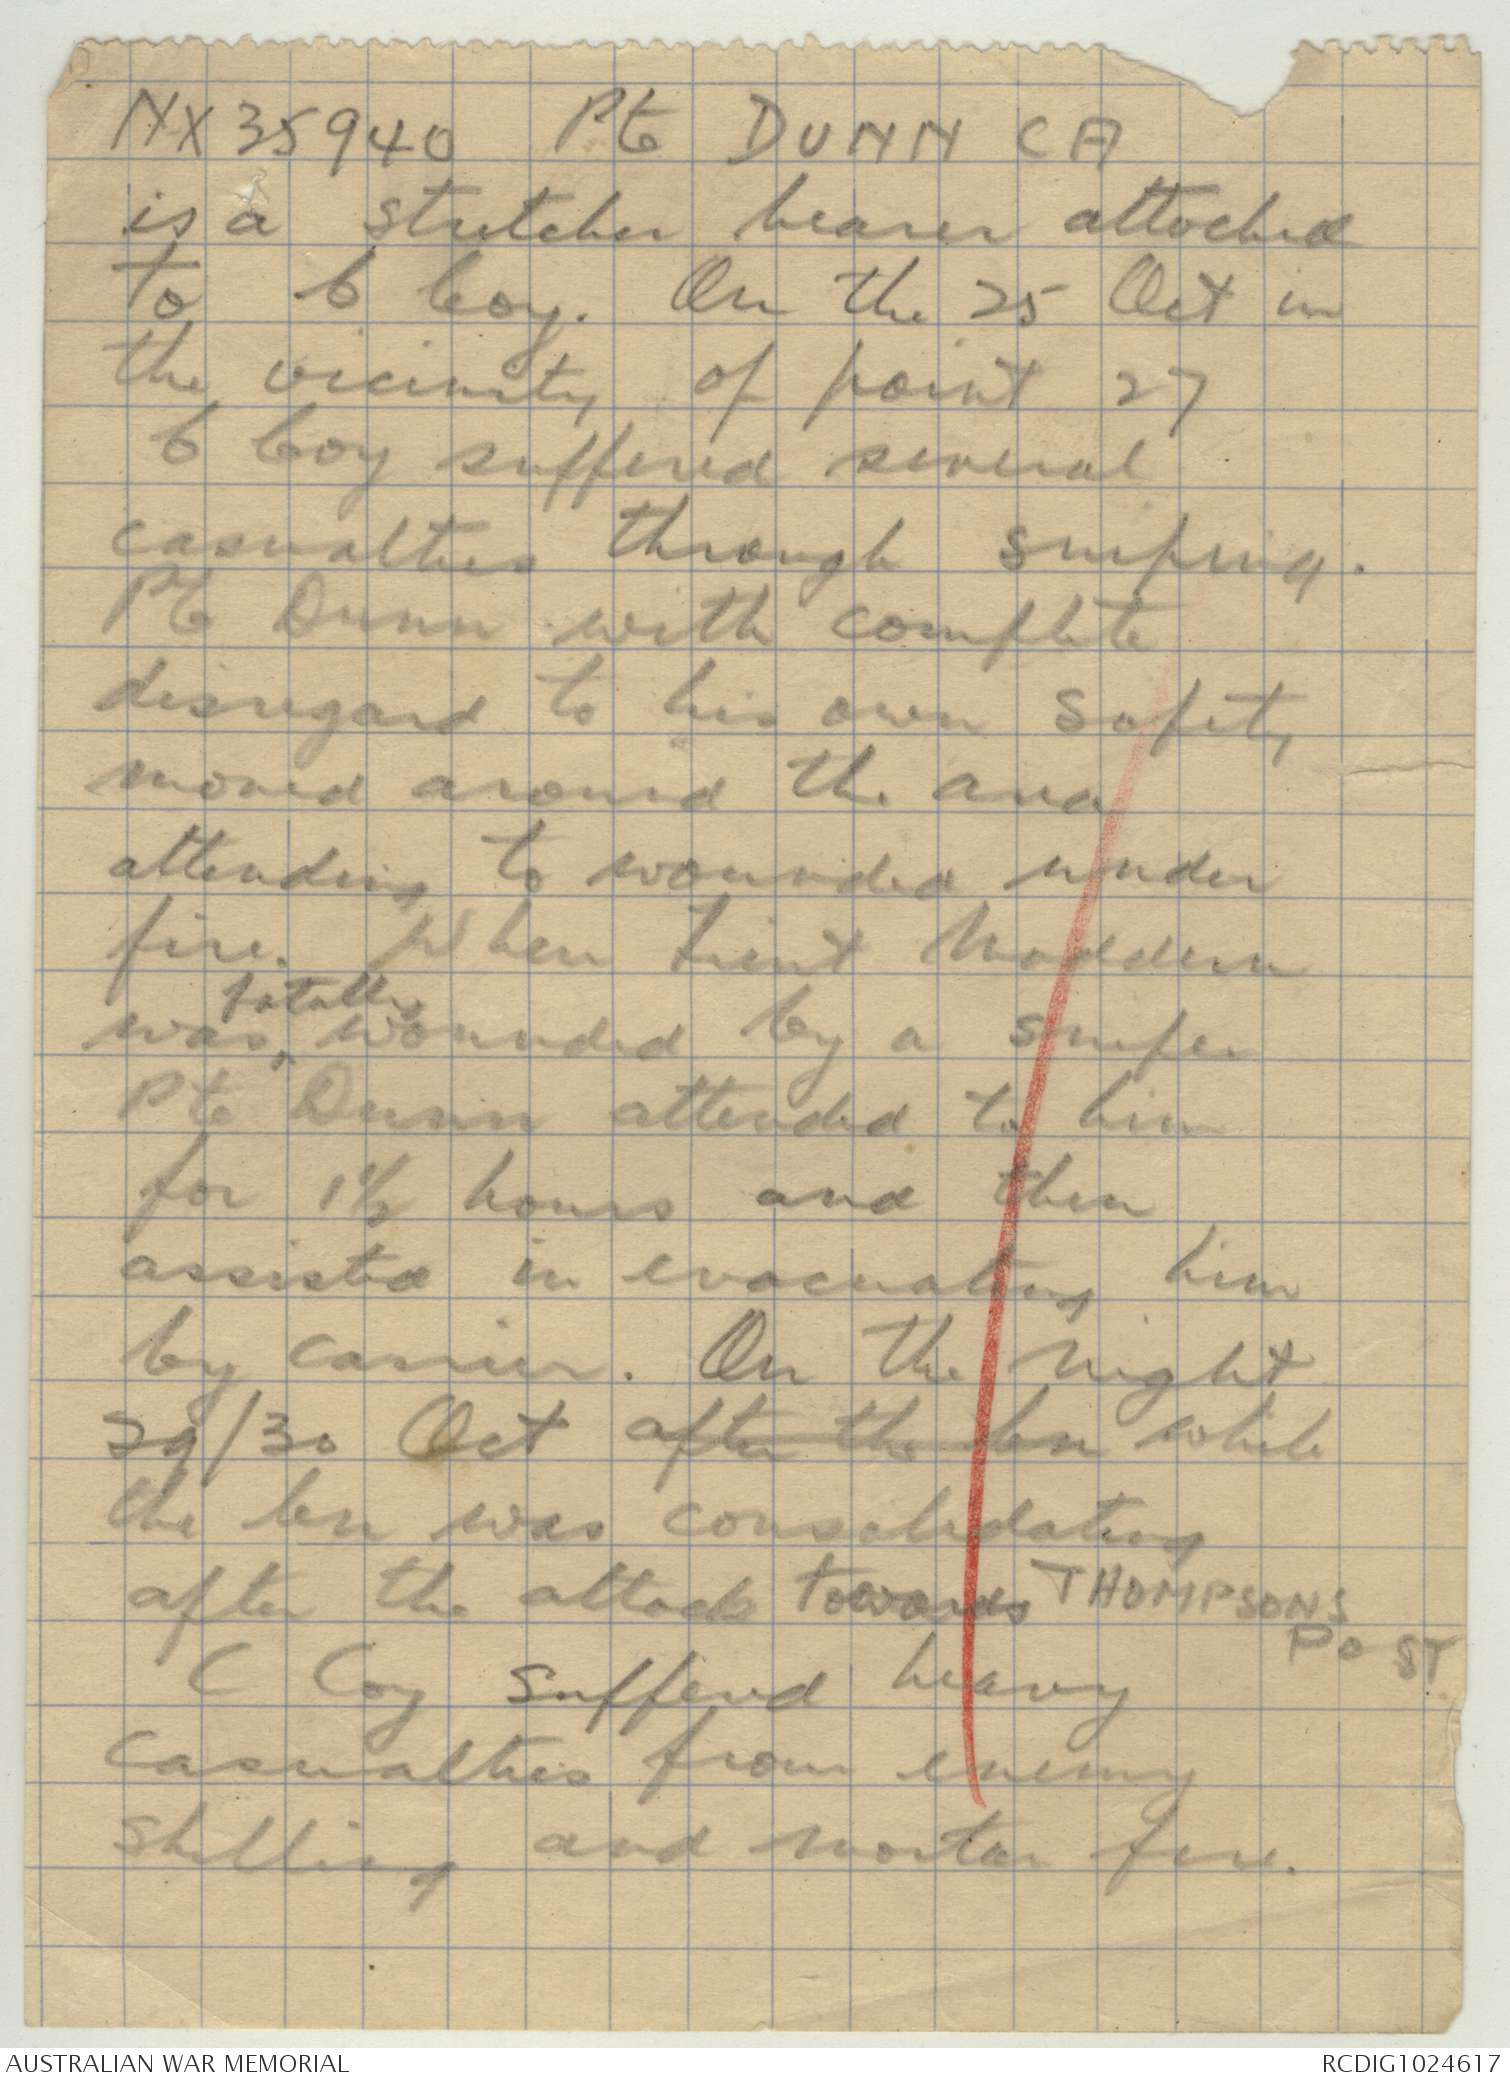 NX35940 Pte DUNN CA
is a stretcher bearer attached
to C Coy. On the 25 Oct in
the vicinity of point 27
C Coy suffered several
casualties through sniping.
Pte Dunn with complete
disregard to his own safety
moved around the area
attending to wounded under
fire. When Lieut Maddern
fatally
was wounded by a sniper
Pte Dunn attended to him
for 1½ hours and then
assisted in evacuating him
by carrier. On the night
29/30 Oct after the bn while
the bn was consolidating
after the attack towards THOMPSONS
POST
C Coy suffered heavy
casualties from enemy
shelling and mortar fire.
AUSTRALIAN WAR MEMORIAL
RCDIG1024617